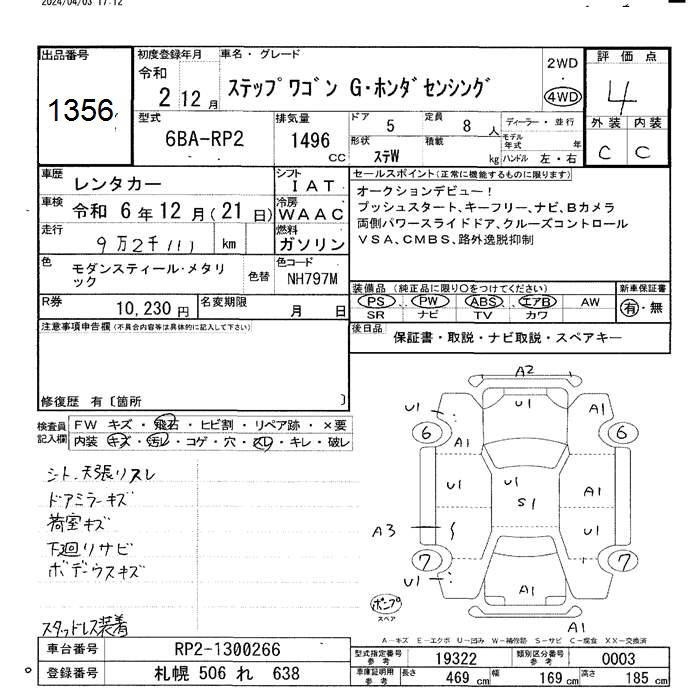 2024/04/03 17:12
出品番号
1356
初度登録年月
令和
2 12月
車名・グレード
ステップワゴン G・ホンダセンシング
2WD
・
4WD
評価点
4
外装 内装
C C
型式
6BA-RP2
排気量
1496
CC
ドア 5
定員 8 人
形状 ステW
積載 kg
ディーラー・並行
モデル年式 年
ハンドル 左・右
車歴 レンタカー
シフト IAT
車検 令和 6年12月(21日)
冷房 WAAC
走行 9万2千111 km
燃料 ガソリン
色 モダンスティール・メタリック
色替
色コード NH797M
R券 10,230円
名変期限 月 日
セールスポイント(正常に機能するものに限ります)
オークションデビュー!
プッシュスタート、キーフリー、ナビ、Bカメラ
両側パワースライドドア、クルーズコントロール
VSA、CMBS、路外逸脱抑制
装備品(純正品に限り○をつけてください)
PS PW ABS エアB AW
SR ナビ TV カワ
新車保証書
有・無
後日品
保証書・取説・ナビ取説・スペアキー
注意事項申告欄(不具合内容等は具体的に記入して下さい)
修復歴 有〔箇所 〕
検査員記入欄
FW キズ・飛石・ヒビ割・リペア跡・×要
内装 キズ・汚レ・コゲ・穴・スレ・キレ・破レ
シート、天張リスレ
ドアミラーキズ
荷室キズ
下廻リサビ
ボデーウスキズ
スタッドレス装着
A2
U1 U1 A1
6 6
A1
U1 U1 A1
S1
A3 U1
7 7
U1 A1
ポンプ
スペア
A1
A-キズ E-エクボ U-凹み W-補修跡 S-サビ C-腐食 XX-交換済
車台番号 RP2-1300266
登録番号 札幌 506 れ 638
型式指定番号 参考 19322
類別区分番号 参考 0003
車庫証明用 参考 長さ 469 cm 幅 169 cm 高さ 185 cm